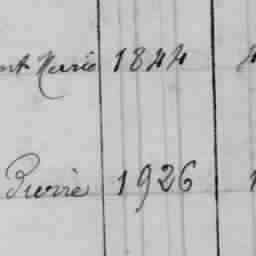 nt Marie 1844
Pierre 1926